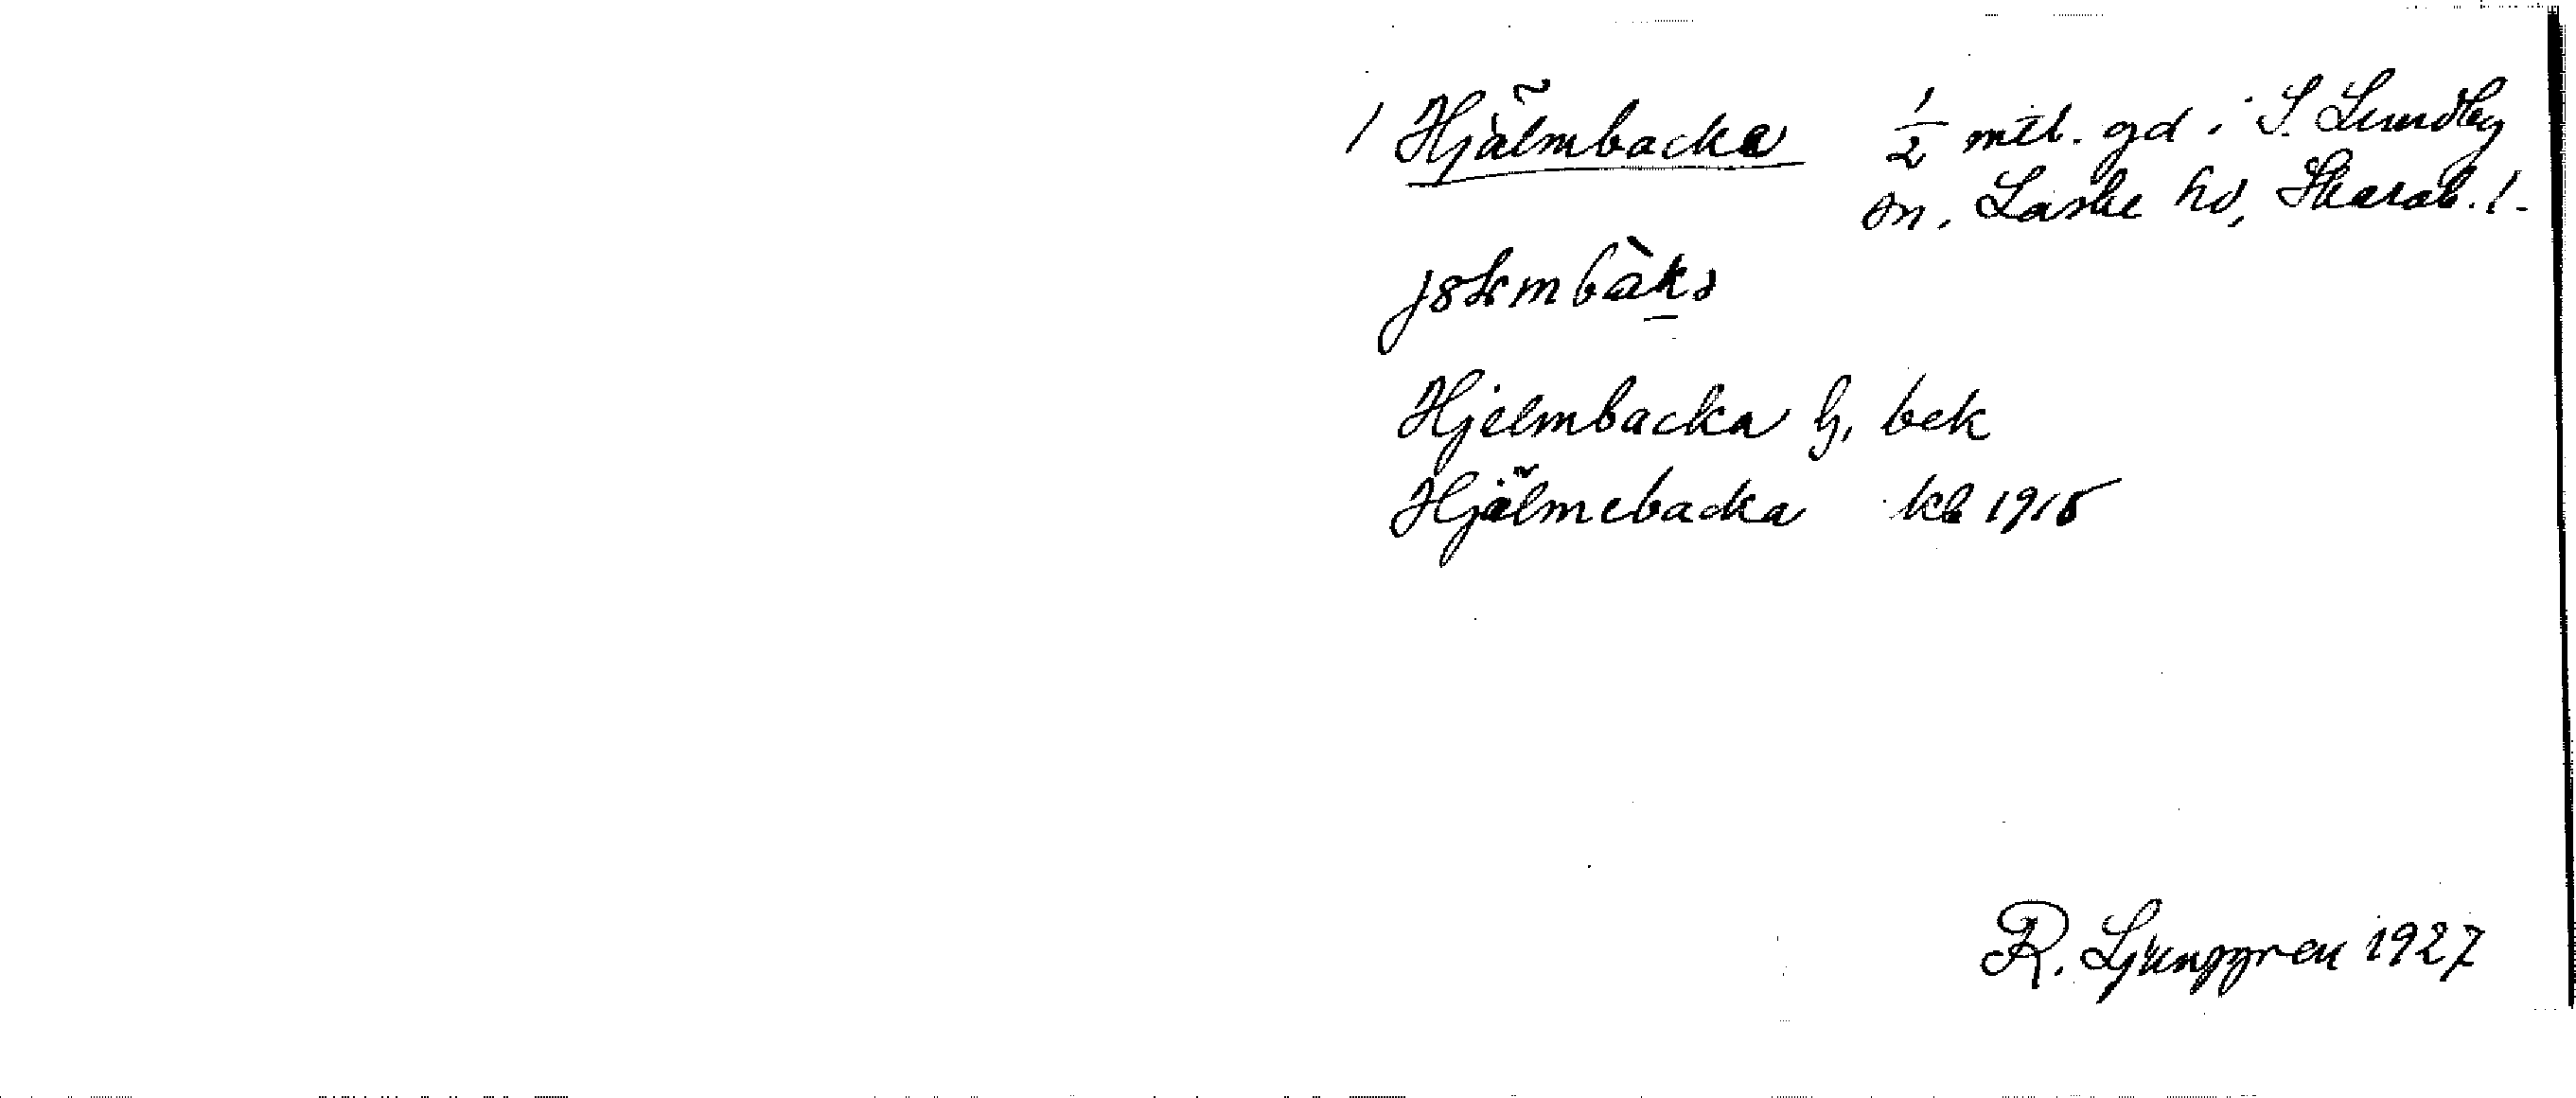 / Hjälmbacka ½ mtl. gd i S. Lundby
sn. Laske hd, Skarab. l.
Hjelmbacka bek
Hjälmebacka kb 1915
R. Ljunggren 1927